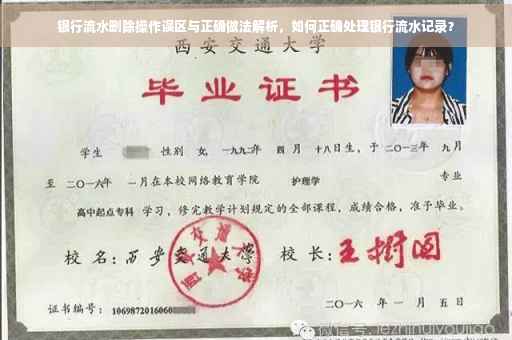 银行流水删除操作误区与正确做法解析，如何正确处理银行流水记录？
西安交通大学
毕业证书
学生 性别 女，一九九二年 四 月 十八日生，于 二〇一三年 九月
至 二〇一六年 一月在本校网络教育学院 护理学 专业
高中起点专科 学习，修完教学计划规定的全部课程，成绩合格，准予毕业。
校 名：西安交通大学 校 长：王树国
西安交通大学
证书编号：1069872016060
二〇一六 年 一 月 五 日
微信号: jezhinuiyoujiao